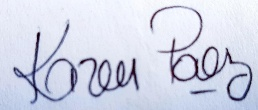 Karen Paez